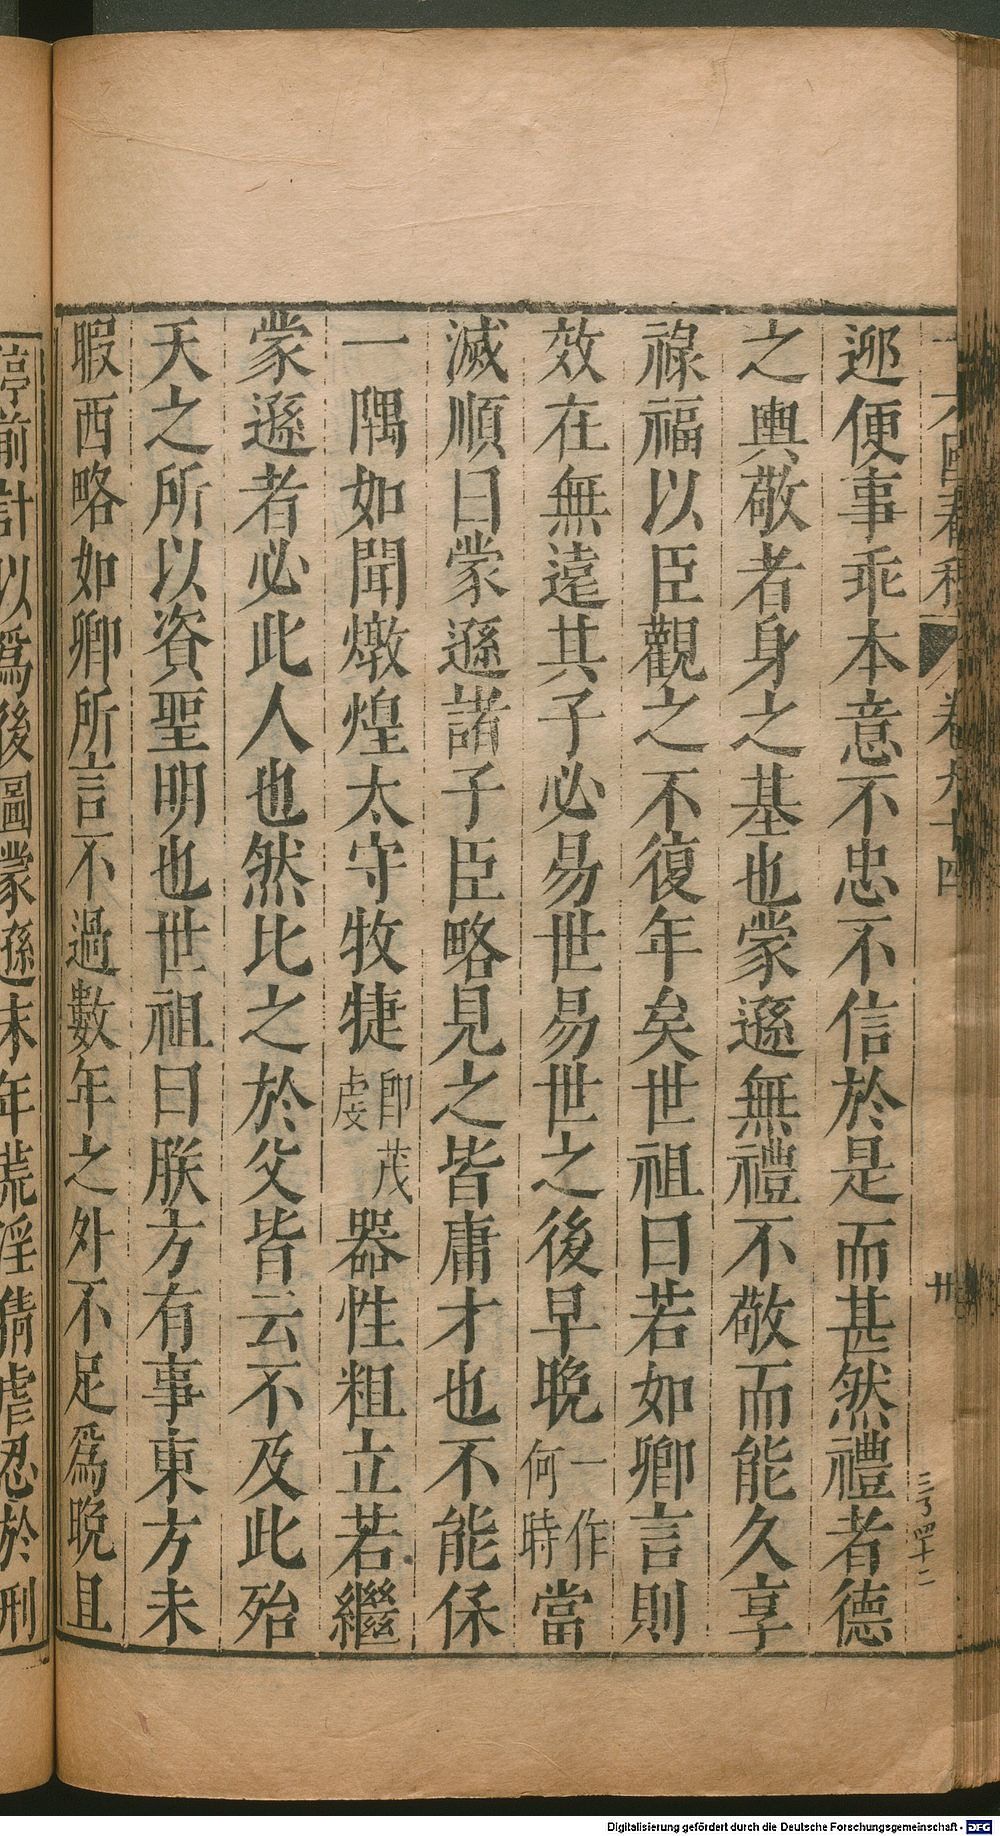 迎便事乖本意不忠不信於是而甚然禮者德
之輿敬者身之基也蒙遜無禮不敬而能久享
祿福以臣觀之不復年矣世祖曰若如卿言則
效在無遠其子必易世易世之後早晚一作何時當
滅順曰蒙遜諸子臣略見之皆庸才也不能保
一隅如聞燉煌太守牧犍即茂虔器性粗立若繼
蒙遜者必此人也然比之於父皆云不及此殆
天之所以資聖明也世祖曰朕方有事東方未
暇西略如卿所言不過數年之外不足為晚且
停前計以爲後圖蒙遜末年荒淫猜虐忍於刑
十六國春秋 卷九十四 卅
Digitalisierung gefördert durch die Deutsche Forschungsgemeinschaft - DFG